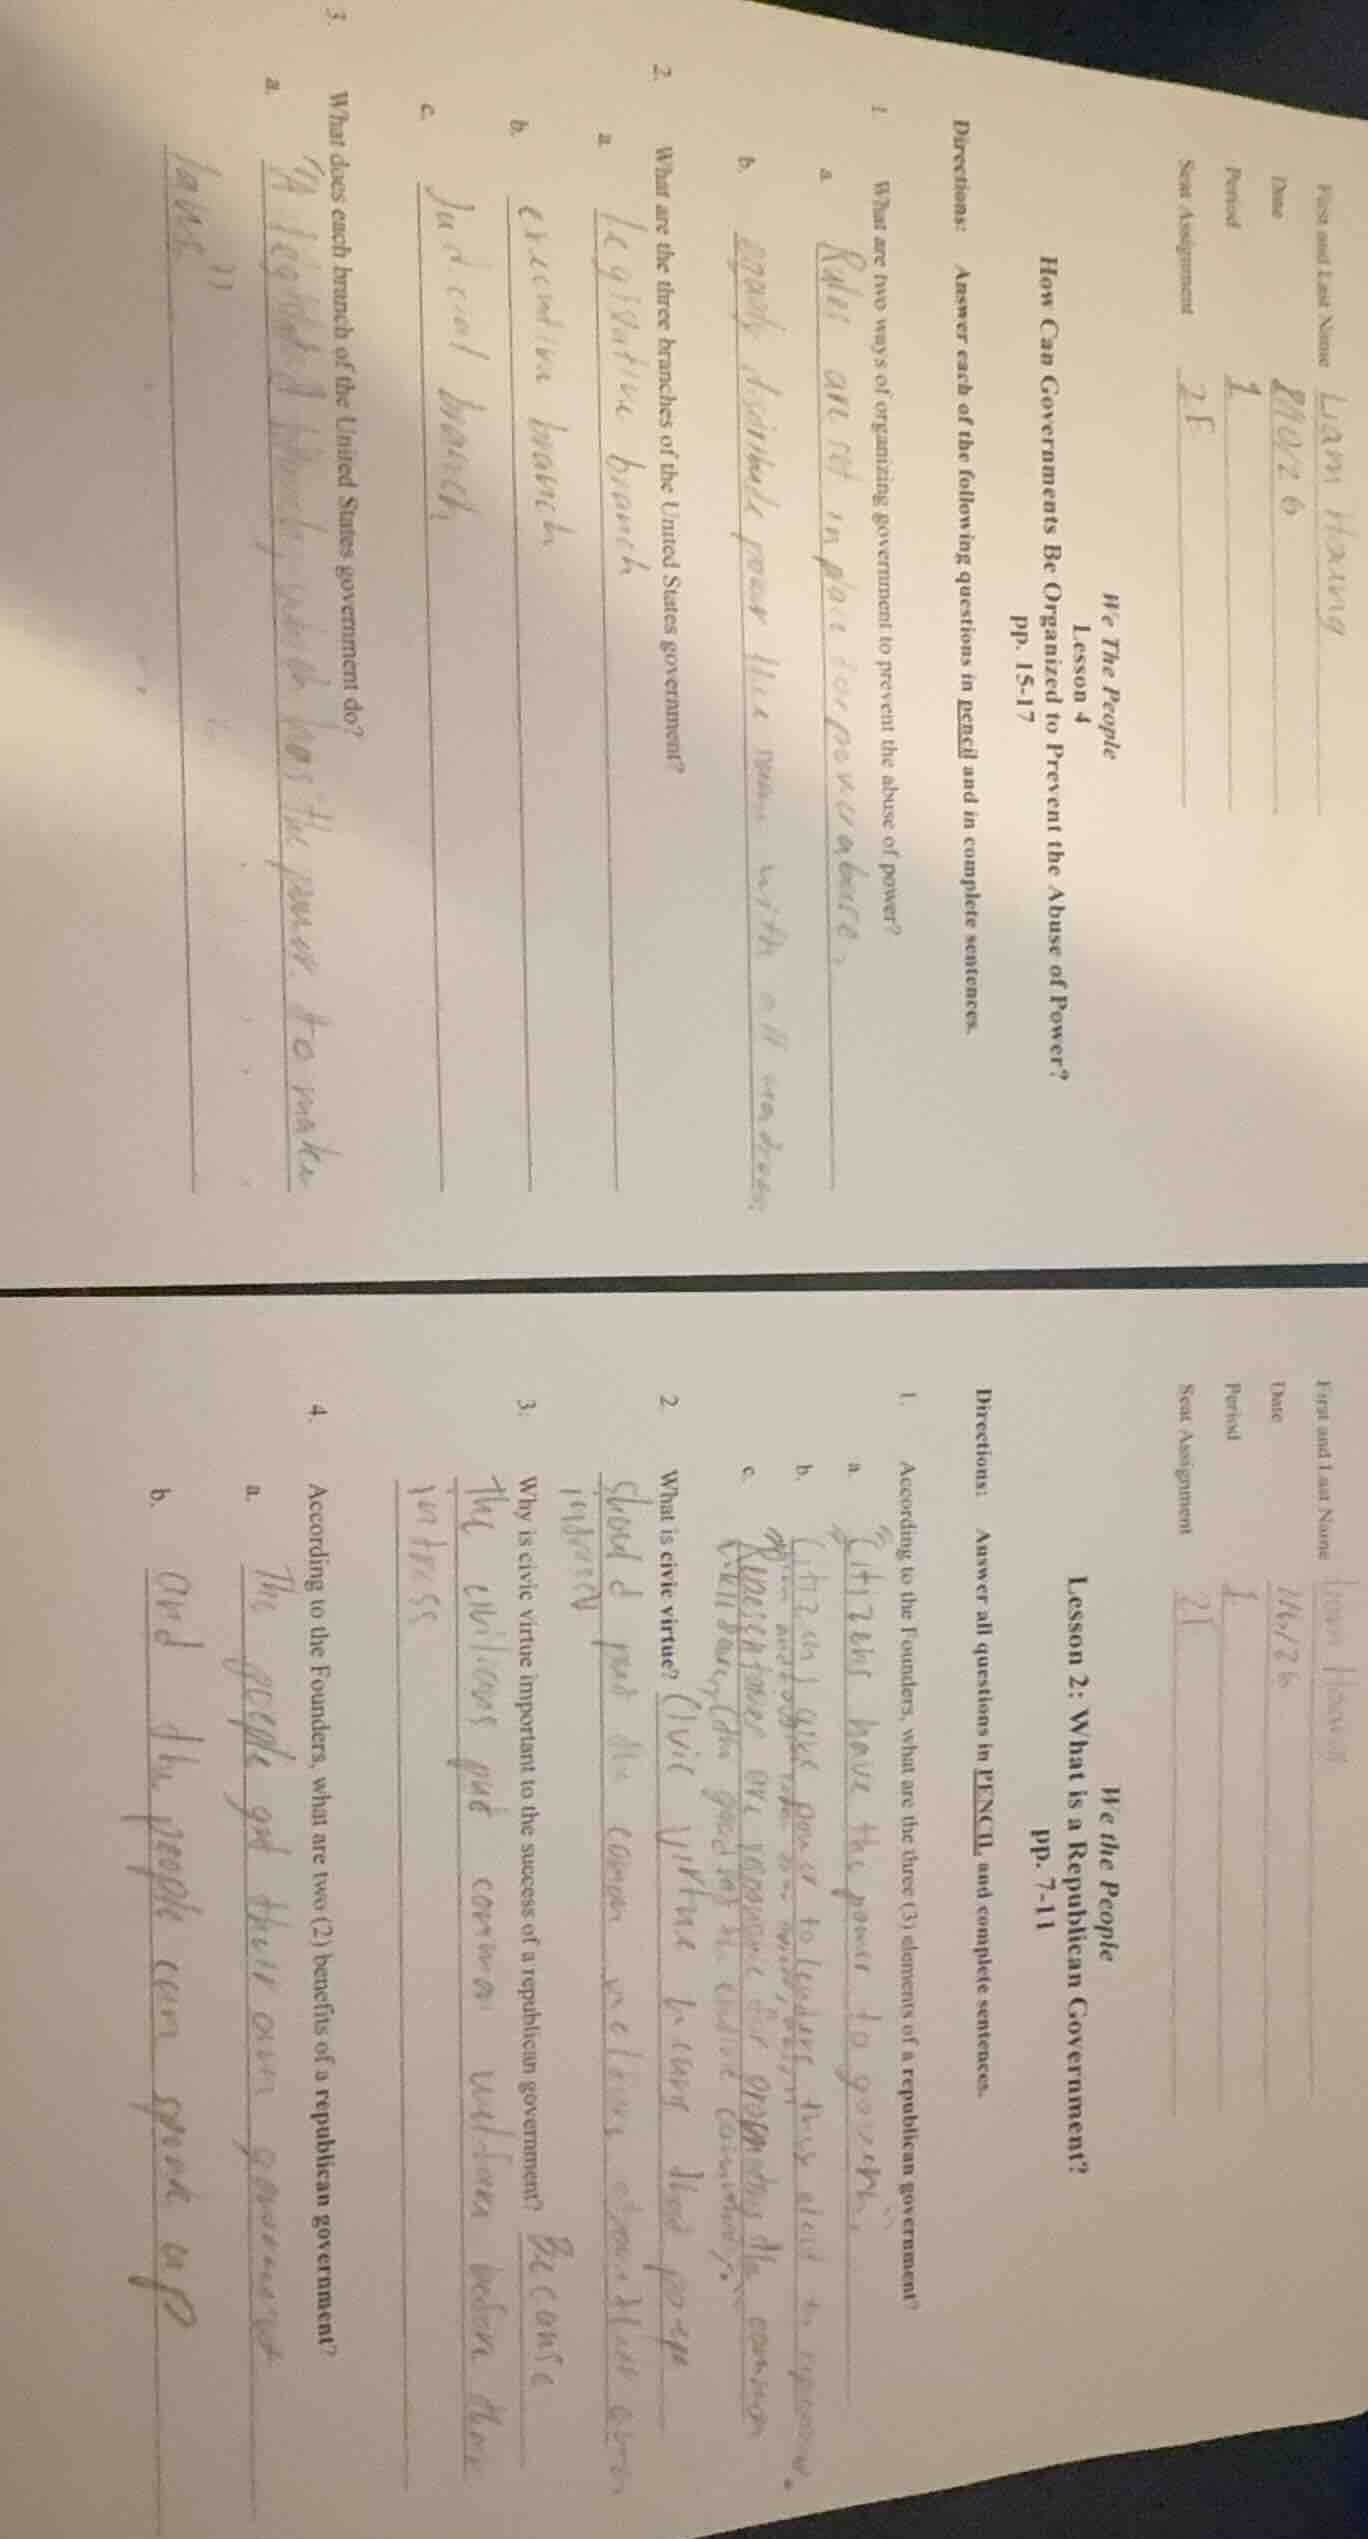 First and Last Name Liam Hoang
Date
Period 1
Seat Assignment 2F
We The People
Lesson 4
How Can Governments Be Organized to Prevent the Abuse of Power?
pp. 15-17
Directions: Answer each of the following questions in pencil and in complete sentences.
1. What are two ways of organizing government to prevent the abuse of power?
a. Rules are set in place for power abuse.
b. distribute power
2. What are the three branches of the United States government?
a. legislative branch
b. executive branch
c. Judicial branch
3. What does each branch of the United States government do?
a. "A branch, which has the power to make
laws"
First and Last Name Liam Hoang
Date
Period 1
Seat Assignment 2F
We the People
Lesson 2: What is a Republican Government?
pp. 7-11
Directions: Answer all questions in PENCIL and complete sentences.
1. According to the Founders, what are the three (3) elements of a republican government?
a. "Citizens have the power to govern."
b. Citizens give power to leaders they elect to
c. are for promoting the common
the entire community."
2. What is civic virtue? Civic virtue means that
should put the
3. Why is civic virtue important to the success of a republican government? Because
the civilians put common welfare before
intress
4. According to the Founders, what are two (2) benefits of a republican government?
a. The people get their own
b. and the people can speak up